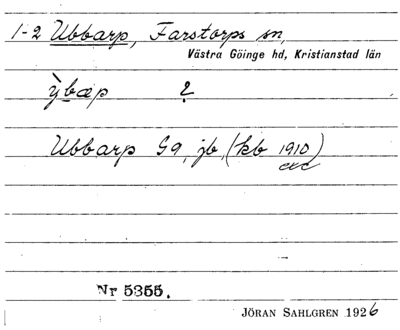 1-2 Ubbarp, Farstorps sn,
Västra Göinge hd, Kristianstad län
ỳbæp 2
Ubbarp Gq, jb, (kb 1910)
etc
Nr 5355.
JÖRAN SAHLGREN 1926